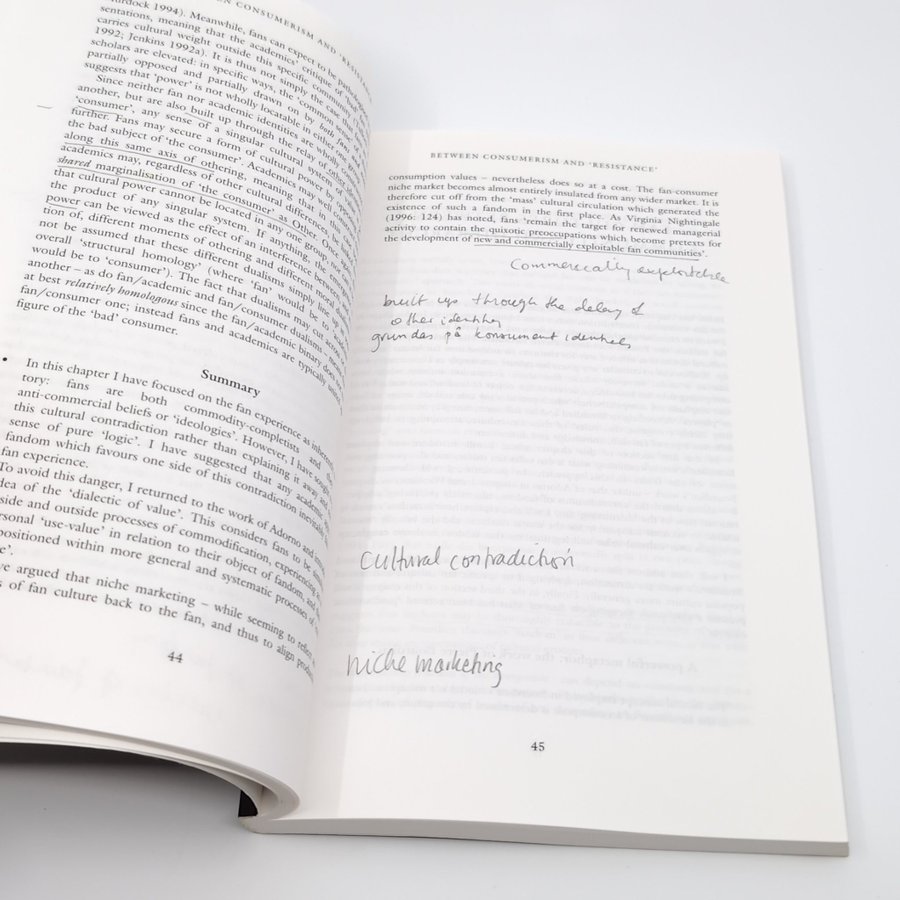 ON CONSUMERISM AND 'RESIST
urdock 1994). Meanwhile, fans can expect to be patholog
sentations, meaning that the academics' critique of
carries cultural weight outside this specific commun
1992; Jenkins 1992a). It is thus not simply the case that
scholars are elevated: in specific ways, the 'common sense'
partially opposed and partially drawn on by both fans and
suggests that 'power' is not wholly locatable in either one
Since neither fan nor academic identities are wholly
another, but are also built up through the relay of other
'consumer', any sense of a singular cultural system of
further. Fans may secure a form of cultural power by
the bad subject of 'the consumer'. Academics may well
along this same axis of othering, meaning that in this
academics may, regardless of other cultural differences
shared marginalisation of 'the consumer' as Other. Once again
that cultural power cannot be located in any one group, nor
the product of any singular system. If anything,
power can be viewed as the effect of an interference between
tion of, different moments of othering and different
not be assumed that these different dualisms simply
overall 'structural homology' (where 'fan' would be to
would be to 'consumer'). The fact that dualisms may cut across
another – as do fan/academic and fan/consumer dualisms –
at best relatively homologous since the fan/academic binary does
fan/consumer one; instead fans and academics are typically
figure of the 'bad' consumer.
Summary
• In this chapter I have focused on the fan experience as inherently
tory: fans are both commodity-completists and
anti-commercial beliefs or 'ideologies'. However, I have sought
this cultural contradiction rather than explaining it away
sense of pure 'logic'. I have suggested that any academic
fandom which favours one side of this contradiction inevitably
fan experience.
To avoid this danger, I returned to the work of Adorno and
dea of the 'dialectic of value'. This considers fans to be
side and outside processes of commodification, experiencing
ersonal 'use-value' in relation to their object of fandom, and
positioned within more general and systematic processes of
e'.
ve argued that niche marketing – while seeming to reflect
s of fan culture back to the fan, and thus to align
44
BETWEEN CONSUMERISM AND 'RESISTANCE'
consumption values – nevertheless does so at a cost. The fan-consumer
niche market becomes almost entirely insulated from any wider market. It is
therefore cut off from the 'mass' cultural circulation which generated the
existence of such a fandom in the first place. As Virginia Nightingale
(1996: 124) has noted, fans 'remain the target for renewed managerial
activity to contain the quixotic preoccupations which become pretexts for
the development of new and commercially exploitable fan communities'.
Commercially exploitable
built up through the delay of
other identity
grundas på konsument
cultural contradiction
niche marketing
45